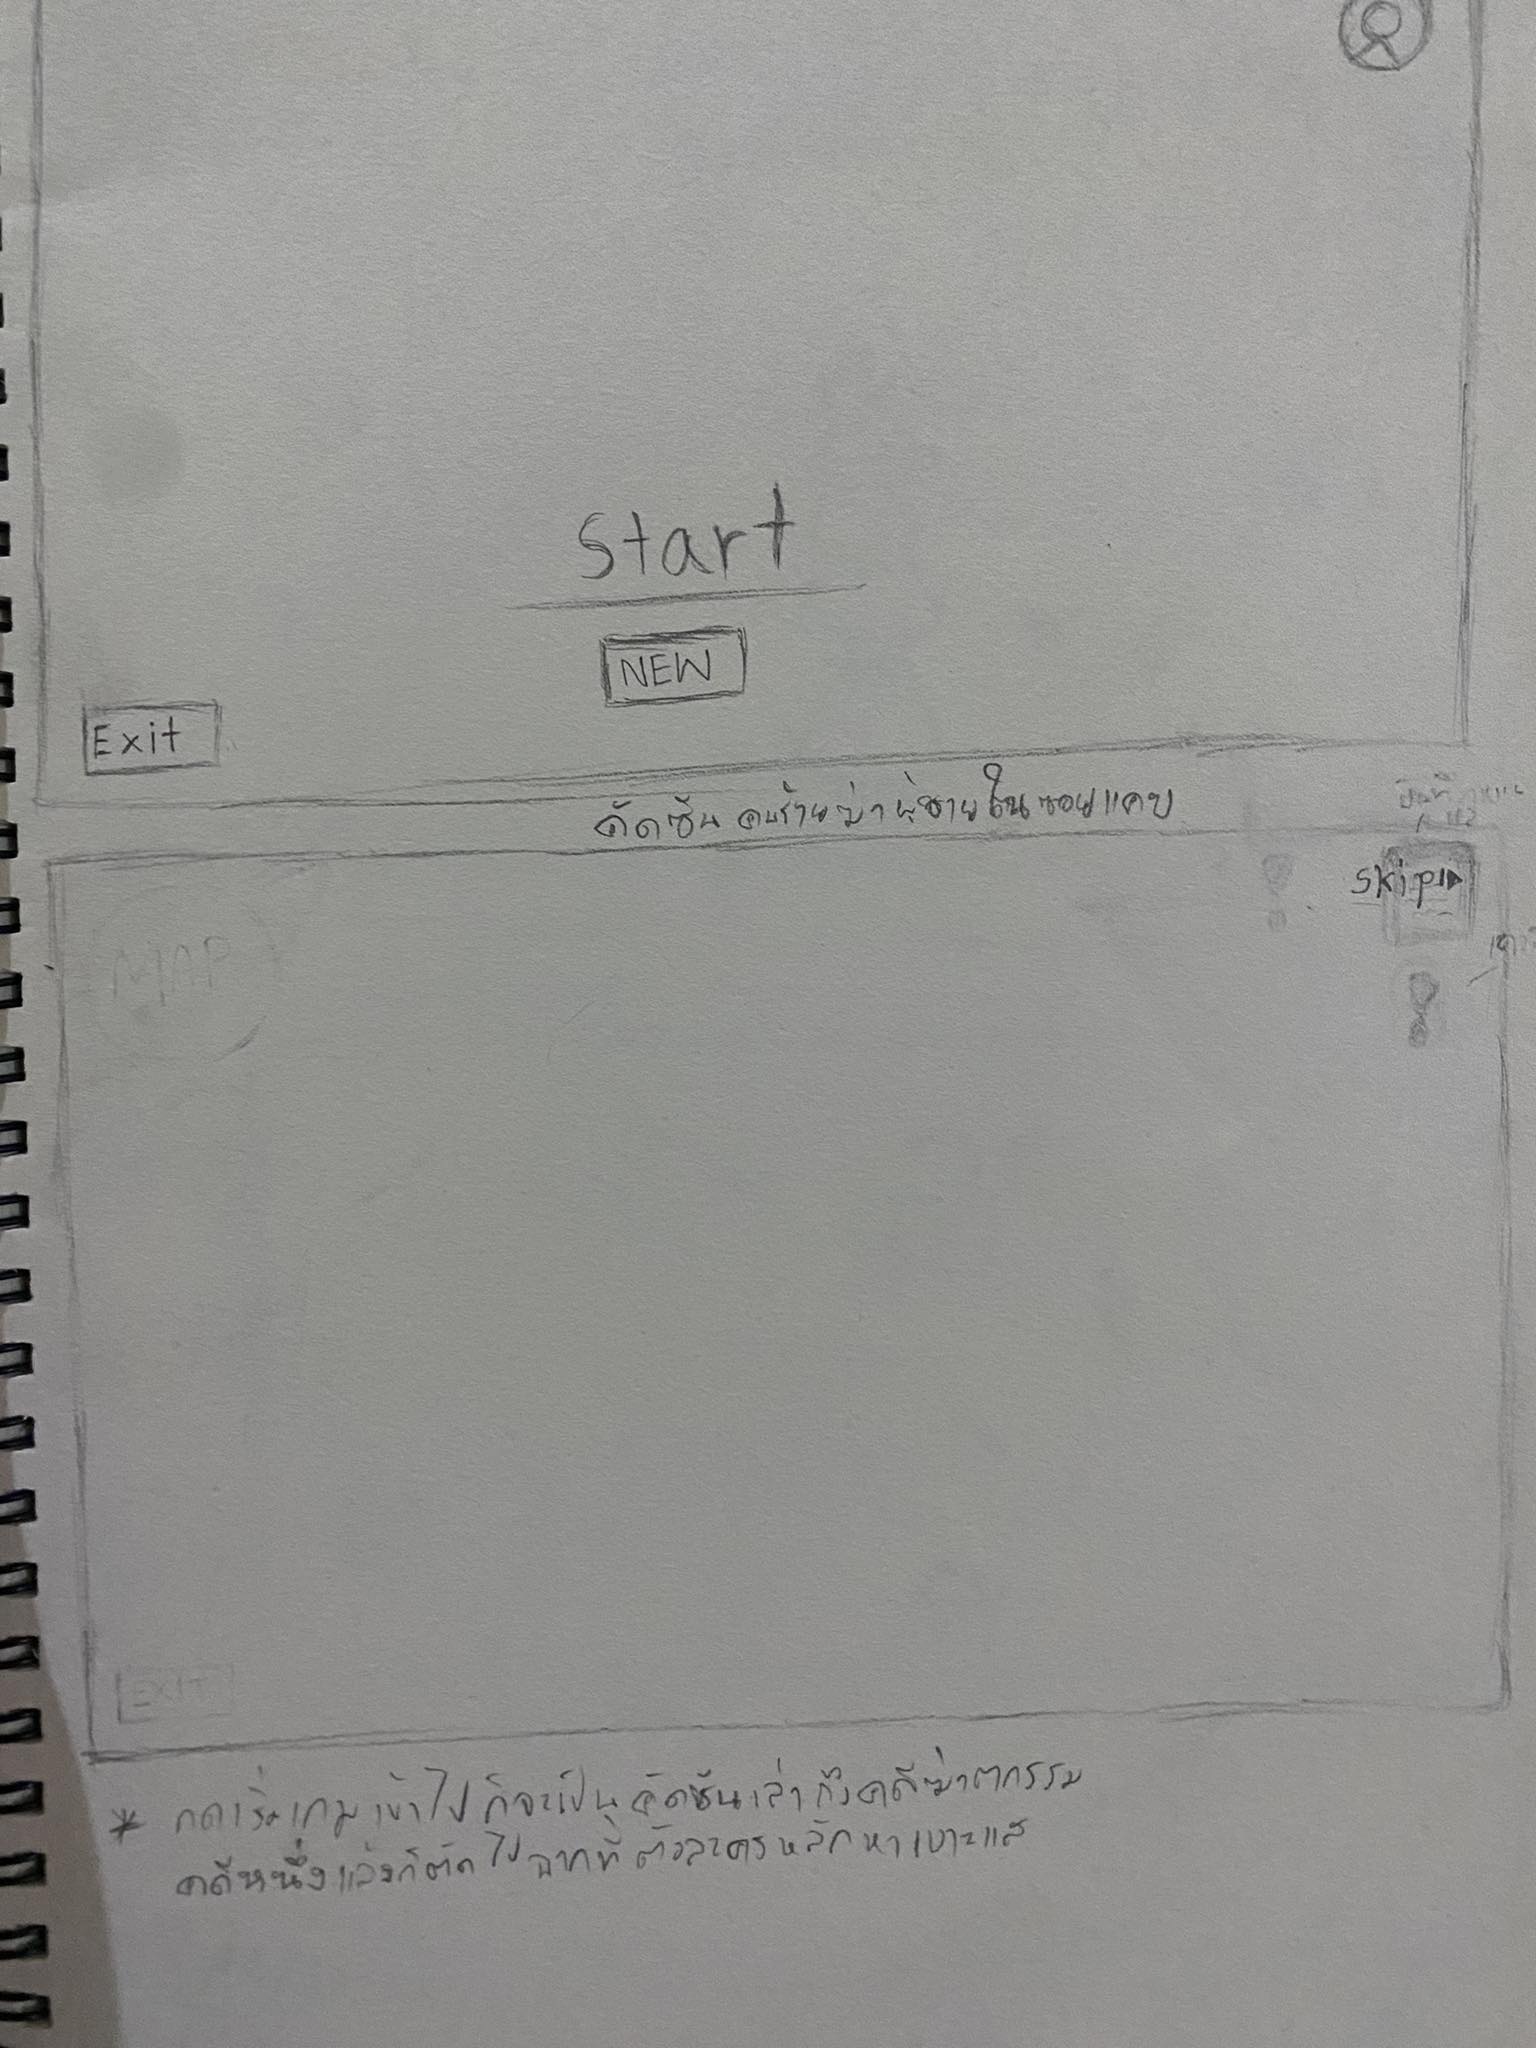 Start
NEW
Exit
คัดซีน คนร้ายฆ่าผู้ชายในซอยแคบ
Skip
MAP
EXIT
* กดเริ่มเกมเข้าไป ก็จะเป็น คัดซีนเล่าถึงคดีฆ่าตกรรม
คดีหนึ่งแล้วก็ตัดไปฉากที่ ตัวละครหลักหาเบาะแส